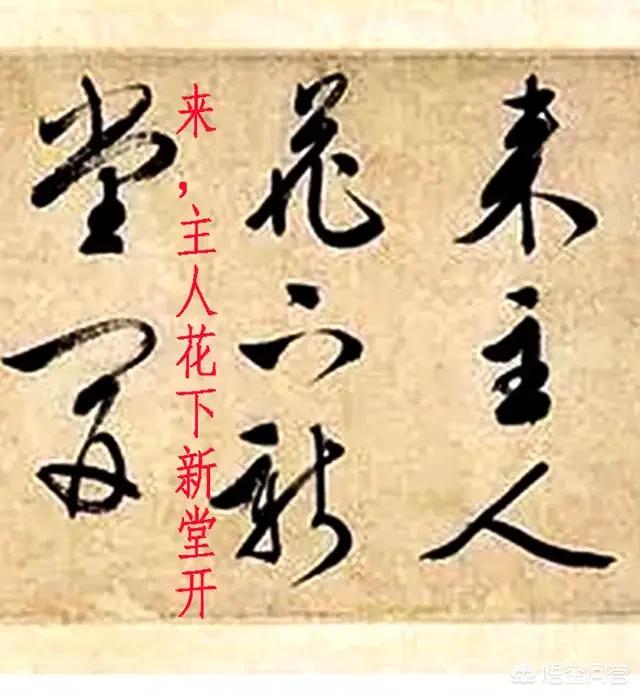 来主人
花下新
堂开
来，主人花下新堂开
悟空问答